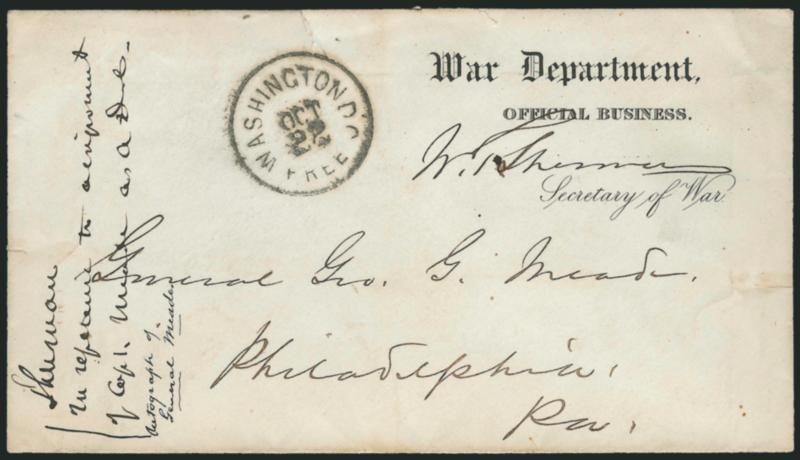 War Department,
OFFICIAL BUSINESS.
W. T. Sherman
Secretary of War
WASHINGTON D.C.
OCT
FREE
General Geo. G. Meade.
Philadelphia,
Pa.
Sherman
In reference to assignment
of Capt. Meade as a D.C.
Autograph of
General Meade